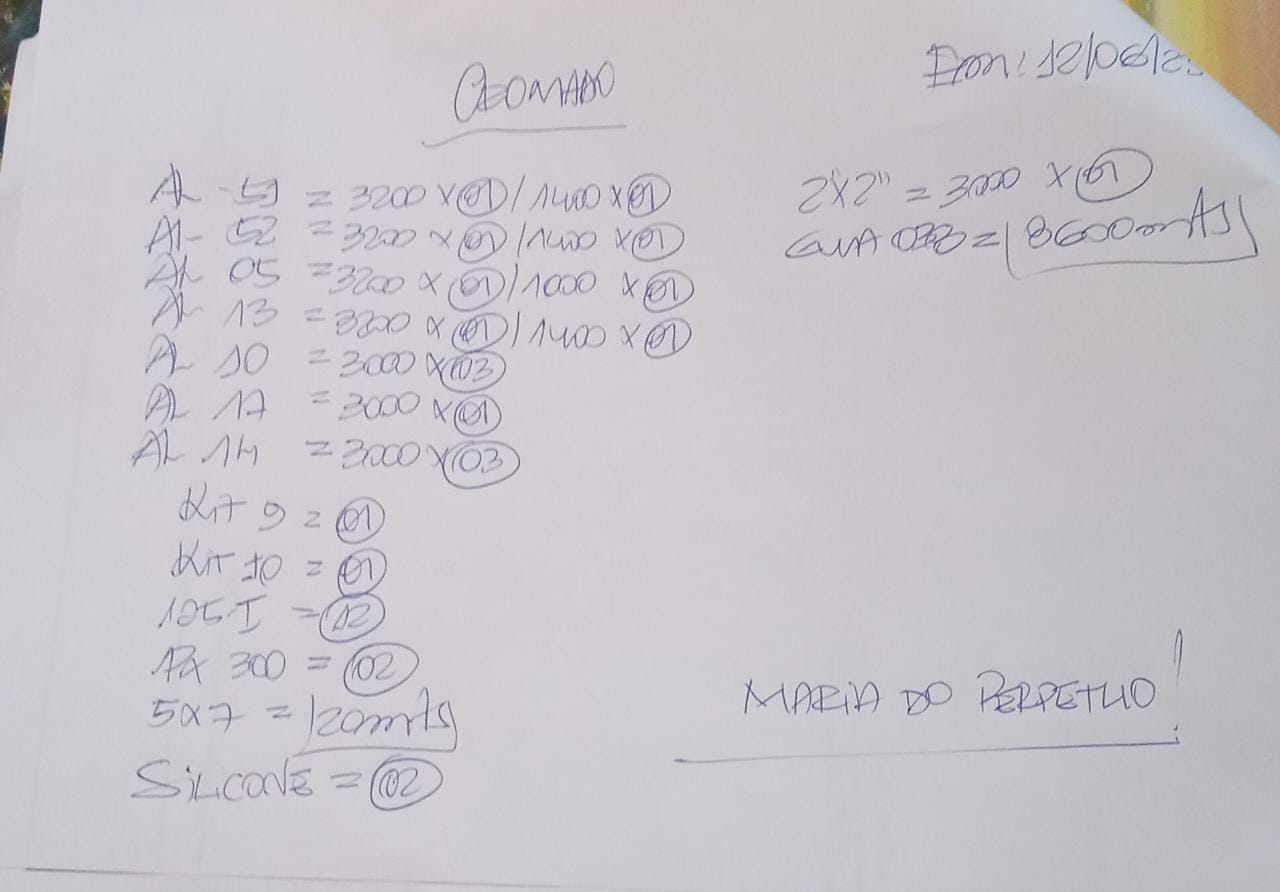 CROMADO
Em: 12/06/2
AL 51 = 3200 X 01 / 1400 X 01
AL- 52 = 3200 X 01 / 1400 X 01
AL 05 = 3200 X 01 / 1000 X 01
AL 13 = 3200 X 01 / 1400 X 01
AL 10 = 3000 X 03
AL 17 = 3000 X 01
AL 14 = 3000 X 03
Kit 9 = 01
Kit 10 = 01
125 I = 12
300 = 02
5X7 = 20mts
SiLiCONE = 02
2"X2" = 3000 X 01
= 8600mts
MARiA DO PERPETUO!